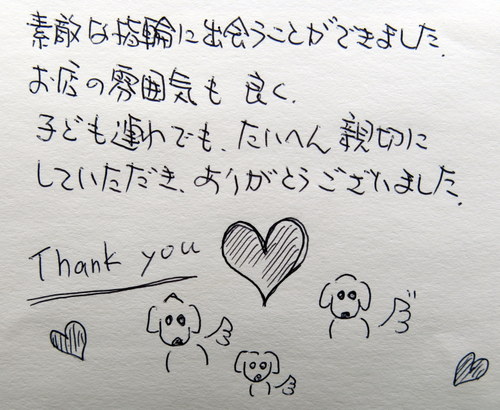 素敵な指輪に出会うことができました。
お店の雰囲気も良く、
子ども連れでも、たいへん親切に
していただき、ありがとうございました。
Thank you